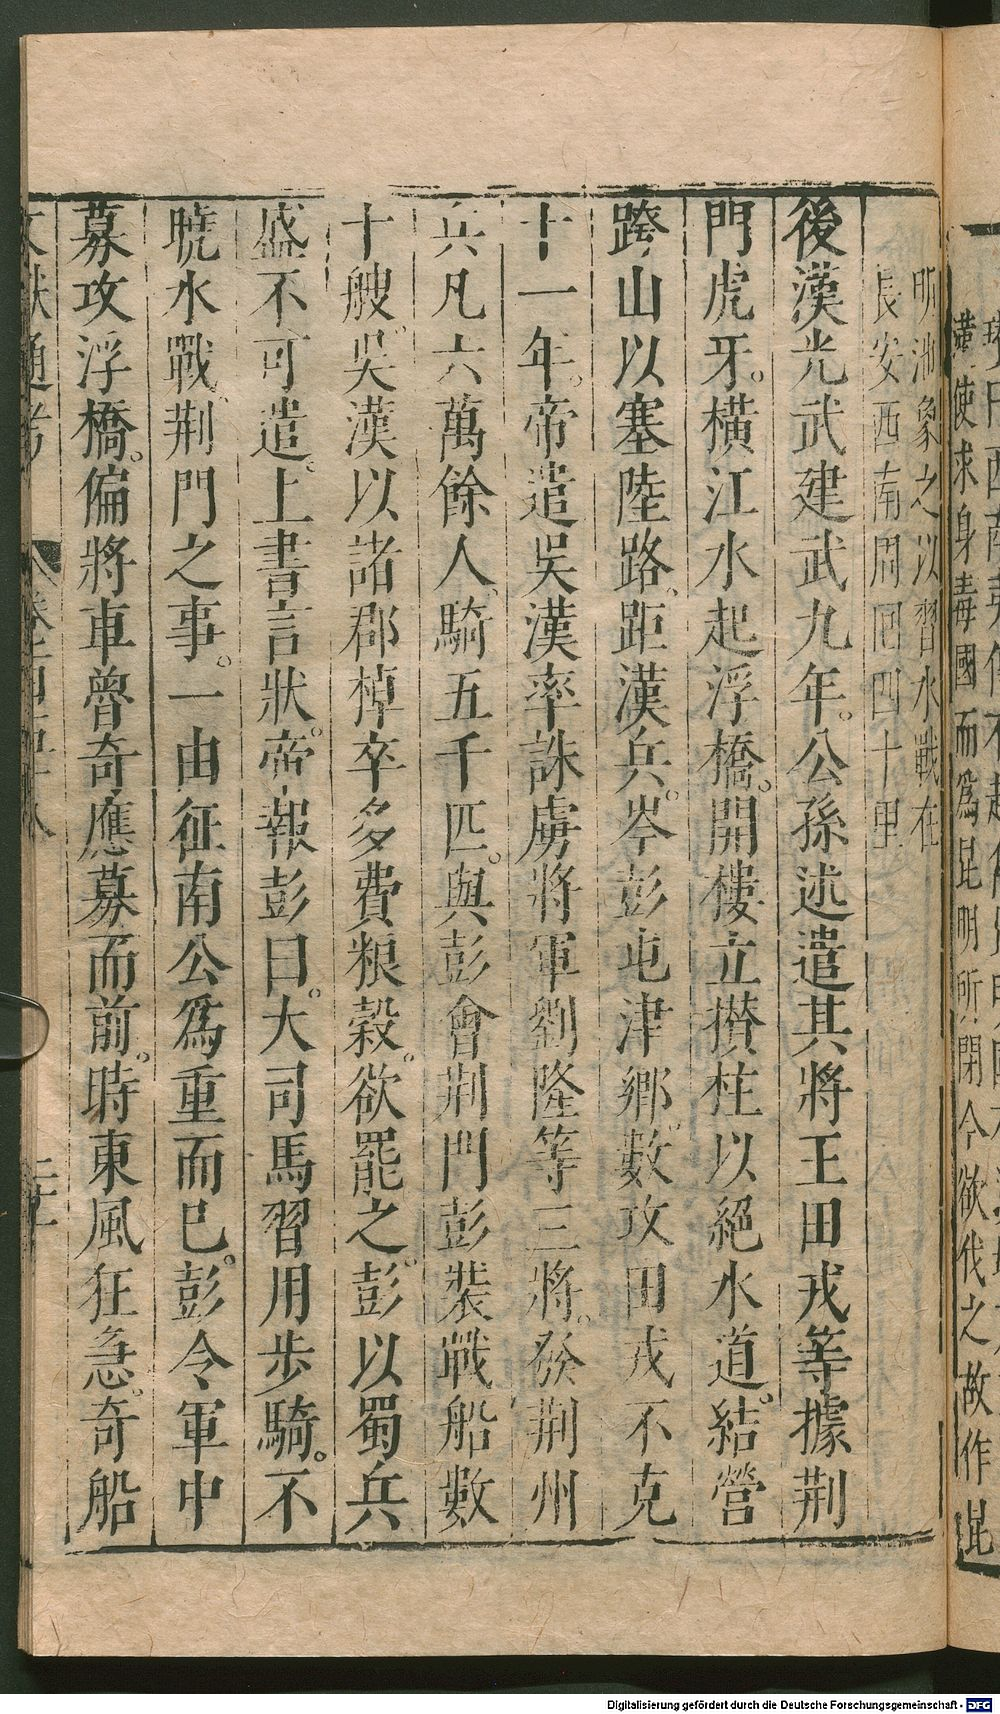 漢使求身毒國而爲昆明所閉今欲伐之故作昆
明池象之以習水戰在
長安西南周囘四十里
後漢光武建武九年。公孫述遣其將王田戎等據荆
門虎牙。橫江水起浮橋。開樓立攢柱以絕水道。結營
跨山以塞陸路。距漢兵。岑彭屯津鄉。數攻田戎不克
十一年。帝遣吳漢率誅虜將軍劉隆等三將。發荆州
兵凡六萬餘人。騎五千匹。與彭會荆門彭裝戰船數
十艘。吳漢以諸郡棹卒多費粮穀。欲罷之。彭以蜀兵
盛不可遣。上書言狀。帝報彭曰。大司馬習用步騎。不
曉水戰。荆門之事。一由征南公爲重而已。彭令軍中
募攻浮橋。偏將車魯奇應募而前。時東風狂急。奇船
通考
Digitalisierung gefördert durch die Deutsche Forschungsgemeinschaft - DFG